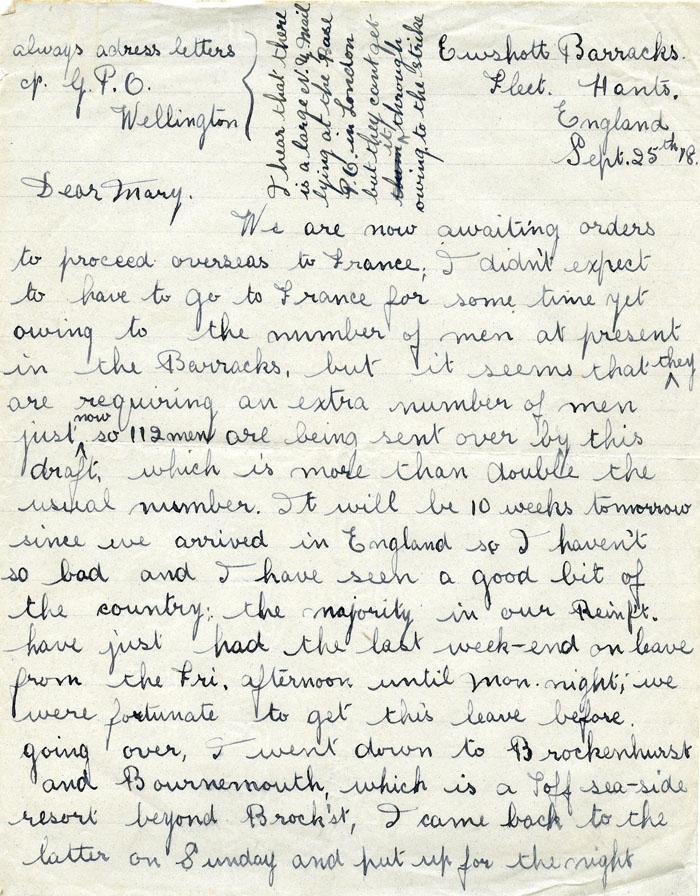 always adress letters
c/o. G.P.O.
Wellington
I hear that there
is a large N.Z. mail
lying at the Base
P.O. in London
but they cant get
it through
owing to the strike
Ewshott Barracks.
Fleet. Hants.
England
Sept. 25th 18.
Dear Mary.
We are now awaiting orders
to proceed overseas to France; I didn't expect
to have to go to France for some time yet
owing to the number of men at present
in the Barracks, but it seems that they
are requiring an extra number of men
just now so 112 men are being sent over by this
draft, which is more than double the
usual number. It will be 10 weeks tomorrow
since we arrived in England so I haven't
so bad and I have seen a good bit of
the country; the majority in our Reinft.
have just had the last week-end on leave
from the Fri. afternoon until Mon. night; we
were fortunate to get this leave before.
going over, I went down to Brockenhurst
and Bournemouth, which is a Toff sea-side
resort beyond Brock'st, I came back to the
latter on Sunday and put up for the night